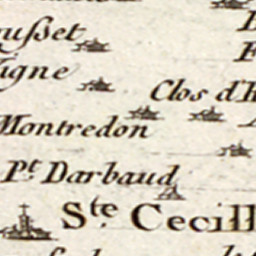 ousset
igne
Clos d'
Montredon
Pt. Darbaud
Ste. Cecill